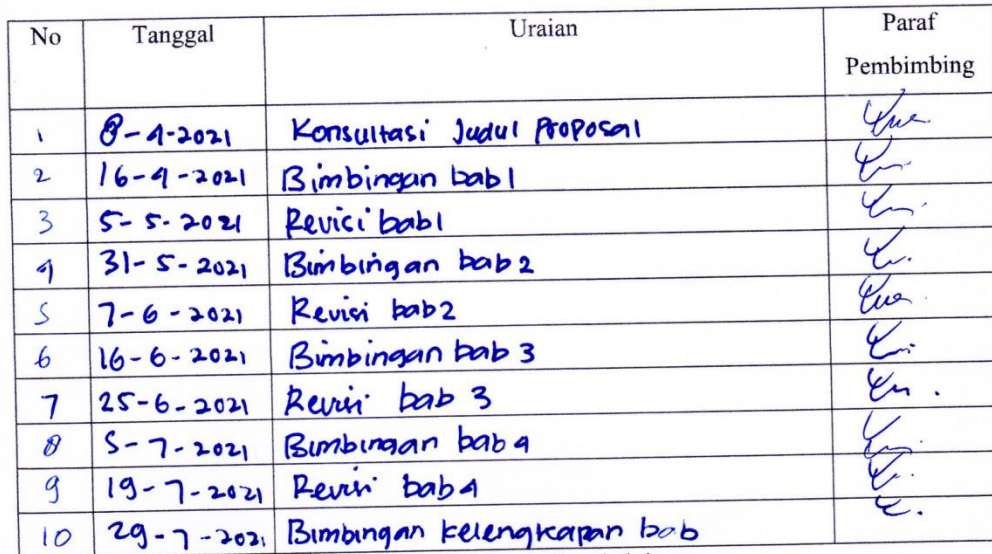 No Tanggal Uraian Paraf Pembimbing
1 8-4-2021 Konsultasi Judul Proposal
2 16-4-2021 Bimbingan bab 1
3 5-5-2021 Revisi bab 1
4 31-5-2021 Bimbingan bab 2
5 7-6-2021 Revisi bab 2
6 16-6-2021 Bimbingan bab 3
7 25-6-2021 Revisi bab 3
8 5-7-2021 Bimbingan bab 4
9 19-7-2021 Revisi bab 4
10 29-7-2021 Bimbingan kelengkapan bab